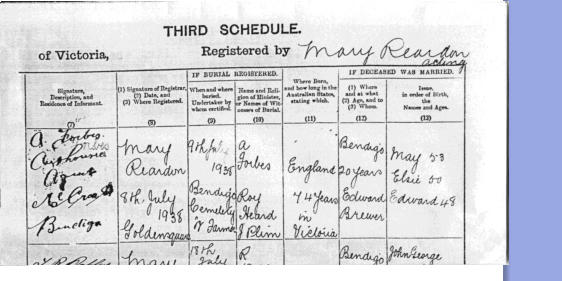 THIRD SCHEDULE.
of Victoria,
Registered by Mary Reardon
acting
IF BURIAL REGISTERED.
IF DECEASED WAS MARRIED.
Signature,
Description, and
Residence of Informant.
(7)
(1) Signature of Registrar,
(2) Date, and
(3) Where Registered.
(8)
When and where
buried.
Undertaker by
whom certified.
(9)
Name and Reli-
gion of Minister,
or Names of Wit-
nesses of Burial.
(10)
Where Born,
and how long in the
Australian States,
stating which.
(11)
(1) Where
and at what
(2) Age, and to
(3) Whom.
(12)
Issue,
in order of Birth,
the
Names and Ages.
(13)
A. Forbes
Agent
McCrae St
Bendigo
Mary
Reardon
8th July
1938
Golden Square
9th July
1938
Bendigo
Cemetery
W Farmer
A
Forbes
Roy
Heard
J Plim
England
74 Years
in
Victoria
Bendigo
20 Years
Edward
Brewer
May 53
Elsie 50
Edward 48
Mary
18th
July
R
Bendigo
John George